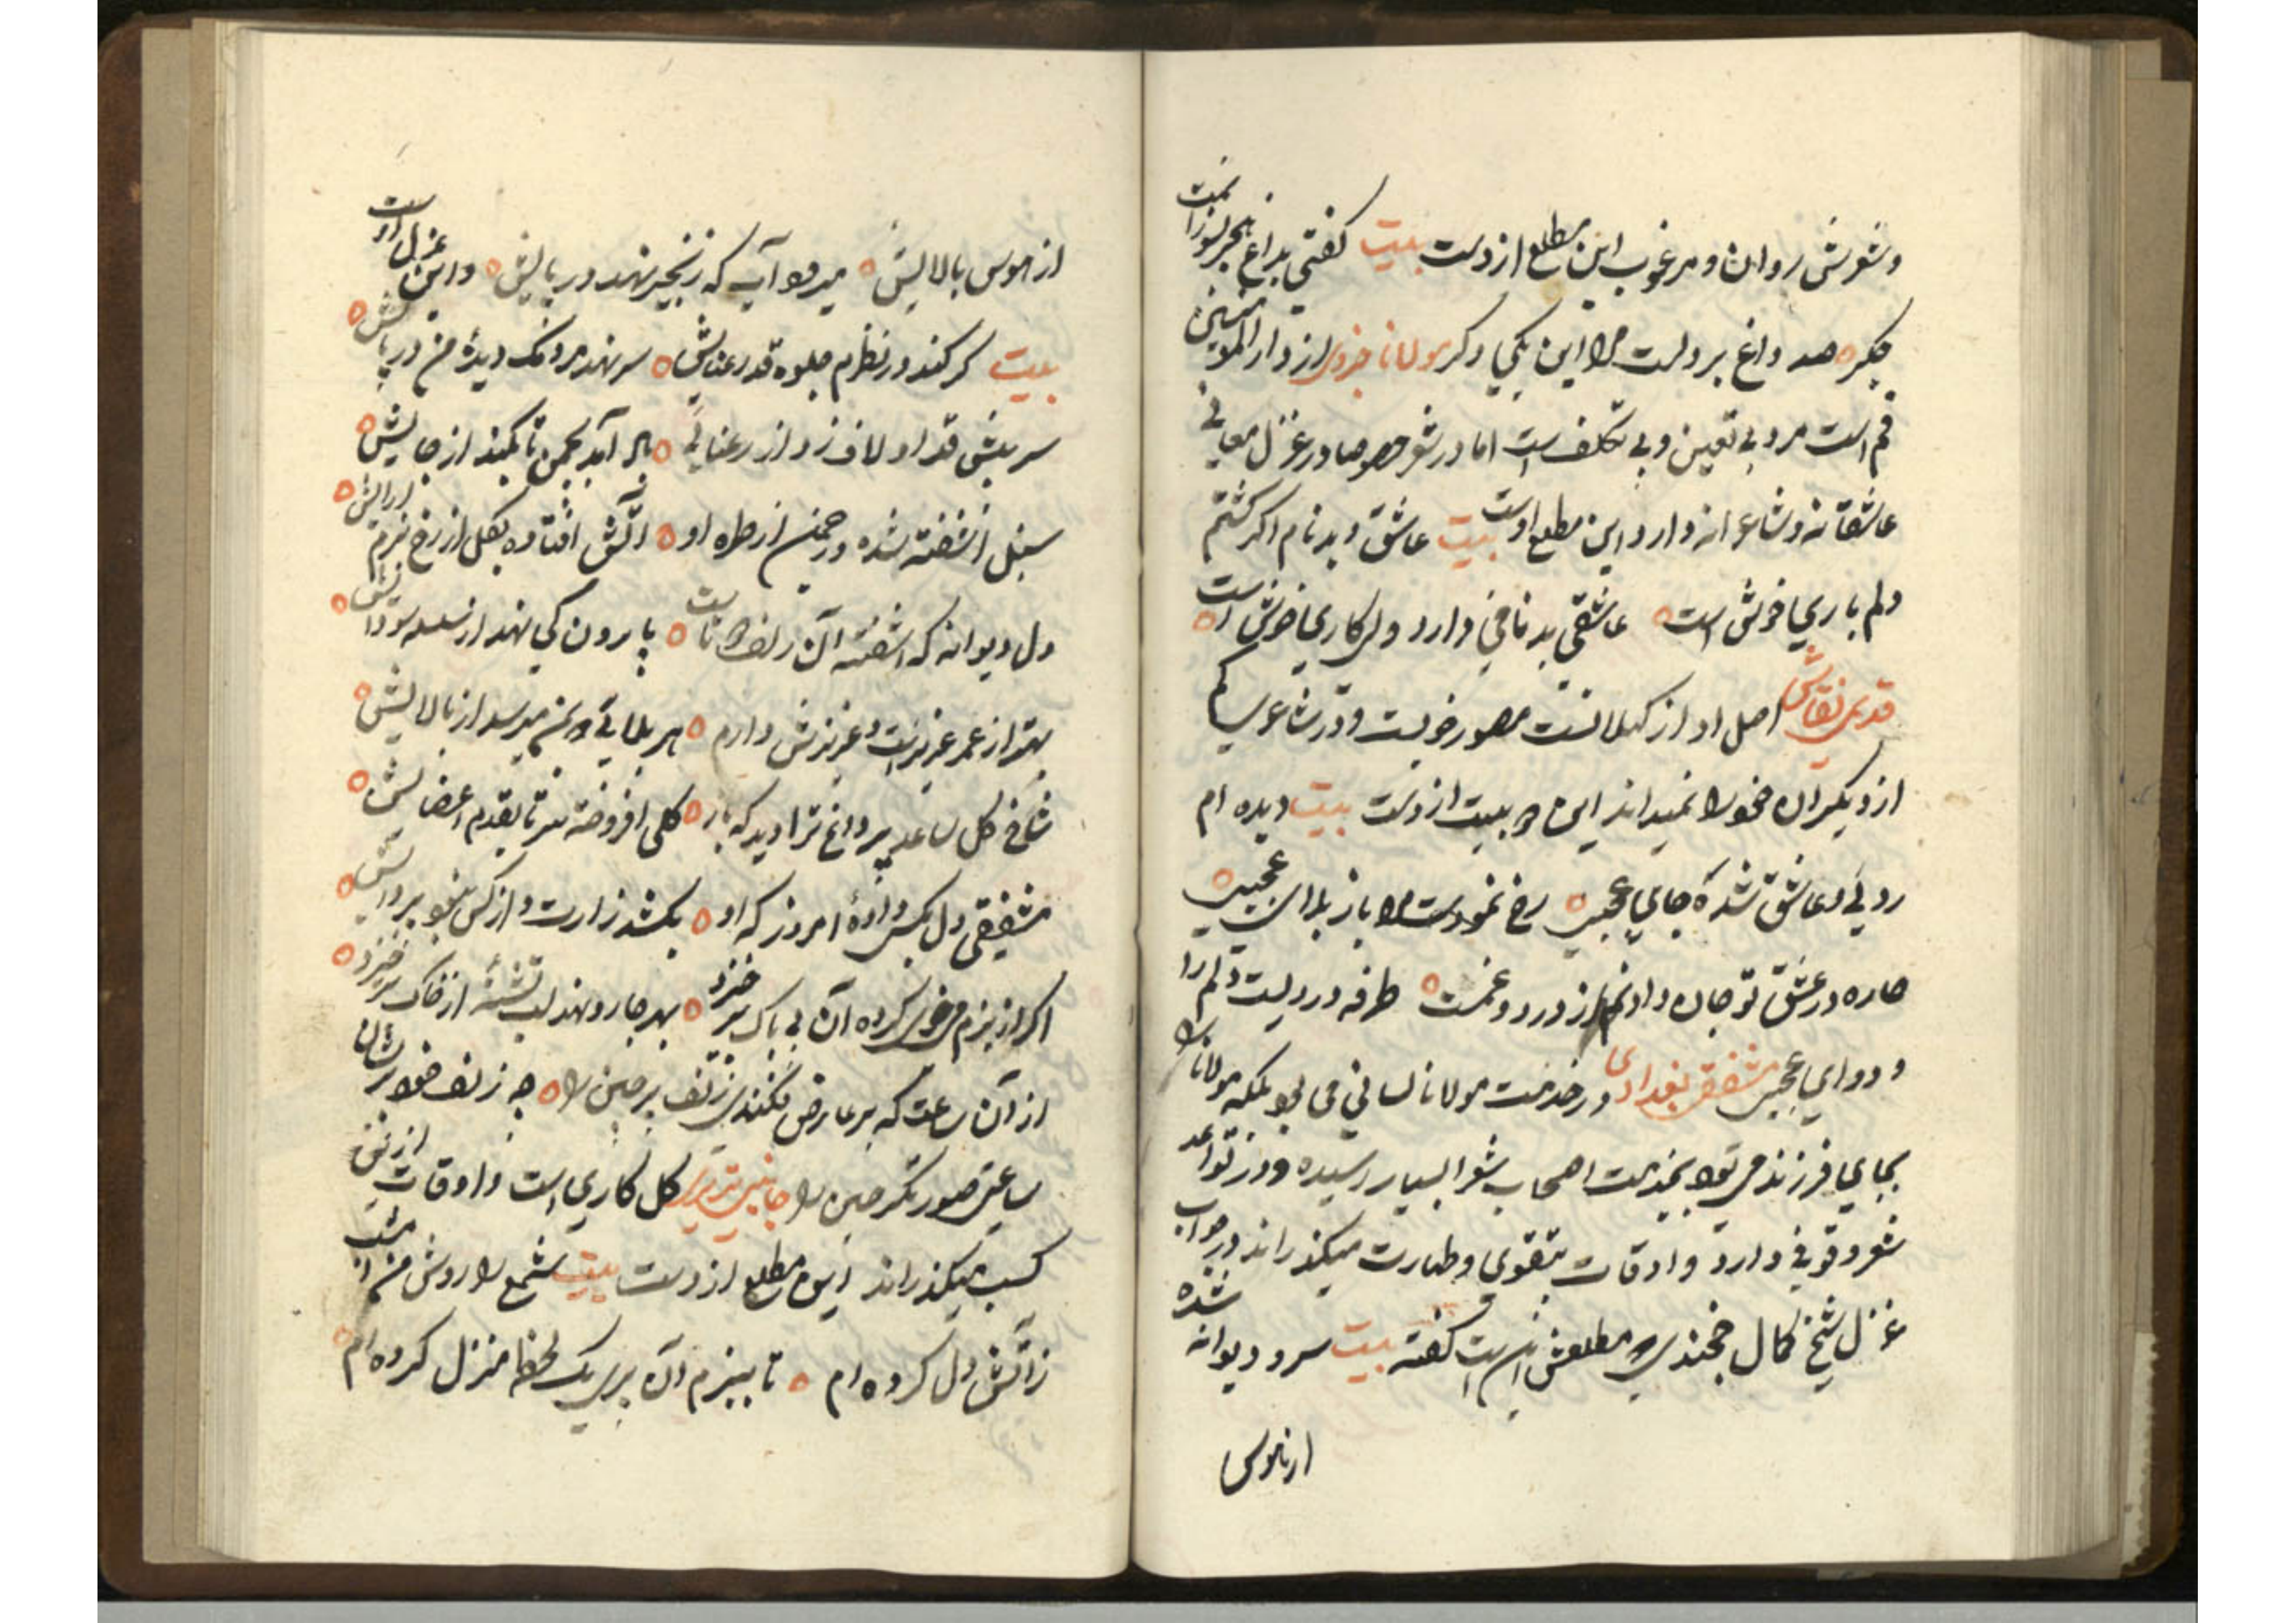 وشعرش روان و مرغوب این مطلع ازوست بیت گفتی بداغ هجر بسوزانمت
جگر صد داغ بر دلست مرا این یکی دگر مولانا حزنی از دار المؤمنین
قم است مرد بی تعین و بی تکلف است اما در شعر خصوصا در غزل معانی
عاشقانه و شاعرانه دارد این مطلع اوست بیت عاشق و بدنام اگر گشتم
دلم باری خوش است عاشقی بدنامی دارد ولی کاری خوش است
قدسی نقاش اصل او از کیلانست مصور خوبست و در شاعری کم
از دیگران خود را نمیداند این دو بیت ازوست بیت دیده ام
روئی و عاشق شده جای عجبی رخ نمودست مرا باز بلای عجبی
چاره در عشق تو جان دادنم از درد و غمت طرفه دردیست دلم را
و دوای عجبی مشفقی بغدادی در خدمت مولانا لسانی می بود بلکه مولانا را
بجای فرزند می بود بخدمت اصحاب شعرا بسیار رسیده و در قواعد
شعر وقوفی دارد و اوقات بتقوی و طهارت میگذراند در جواب
غزل شیخ کمال خجندی که مطلعش این است گفته بیت سرو دیوانه شده
از هوس
از هوس بالایش میرود آب که زنجیر نهد در پایش و این غزل اوست
بیت گر کند در نظرم جلوه قد رعنایش سر نهد مردمک دیده من در پایش
سرو پیش قد او لاف زد از رعنائی باد آمد بچمن تا بکند از جایش
سنبل آشفته شده در چمن از طره او آتش افتاده بگل از رخ بزم آرایش
دل دیوانه که آشفته آن زلف دوتاست پا برون کی نهد از سلسله سودایش
بهتر از عمر عزیزست و عزیزش دارم هر بلائی که بمن میرسد از بالایش
شاخ گل ساعد پر داغ ترا دید که باز گلی افروخته سر تا بقدم اعضایش
مشفقی دل بکس داده امروز که او بکشد زارت و از کس نبود پروایش
اگر از بزم می خوی کرده آن بی باک برخیزد بهر جا رو نهد لب تشنه از خاک برخیزد
از آن ساعت که بر عارض فکندی زلف پرچین را چه زلف خود پریشان
ساعتی صورتگر چین را جانبی تبریزی گل کاری است و اوقات از آن
کسب میگذراند این مطلع ازوست بیت شمع را روشن من امشب
ز آتش دل کرده ام تا ببزم آن پری یک لحظه منزل کرده ام